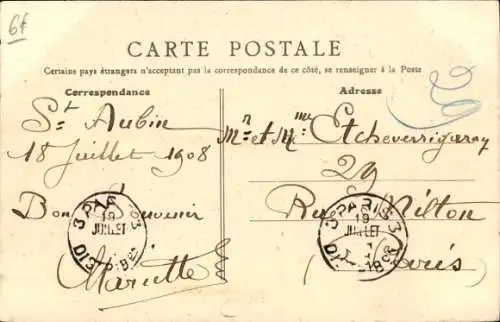 6f
CARTE POSTALE
Certains pays étrangers n'acceptant pas la correspondance de ce côté, se renseigner à la Poste
Correspondance
Adresse
St Aubin
18 Juillet 1908
Bon Souvenir
Mariette
Mr et Mme Etcheverrigaray
29
Rue Milton
(Paris)
3 PAR
19
JUILLET
DIEPPE
3 PARIS 3
19
JUILLET